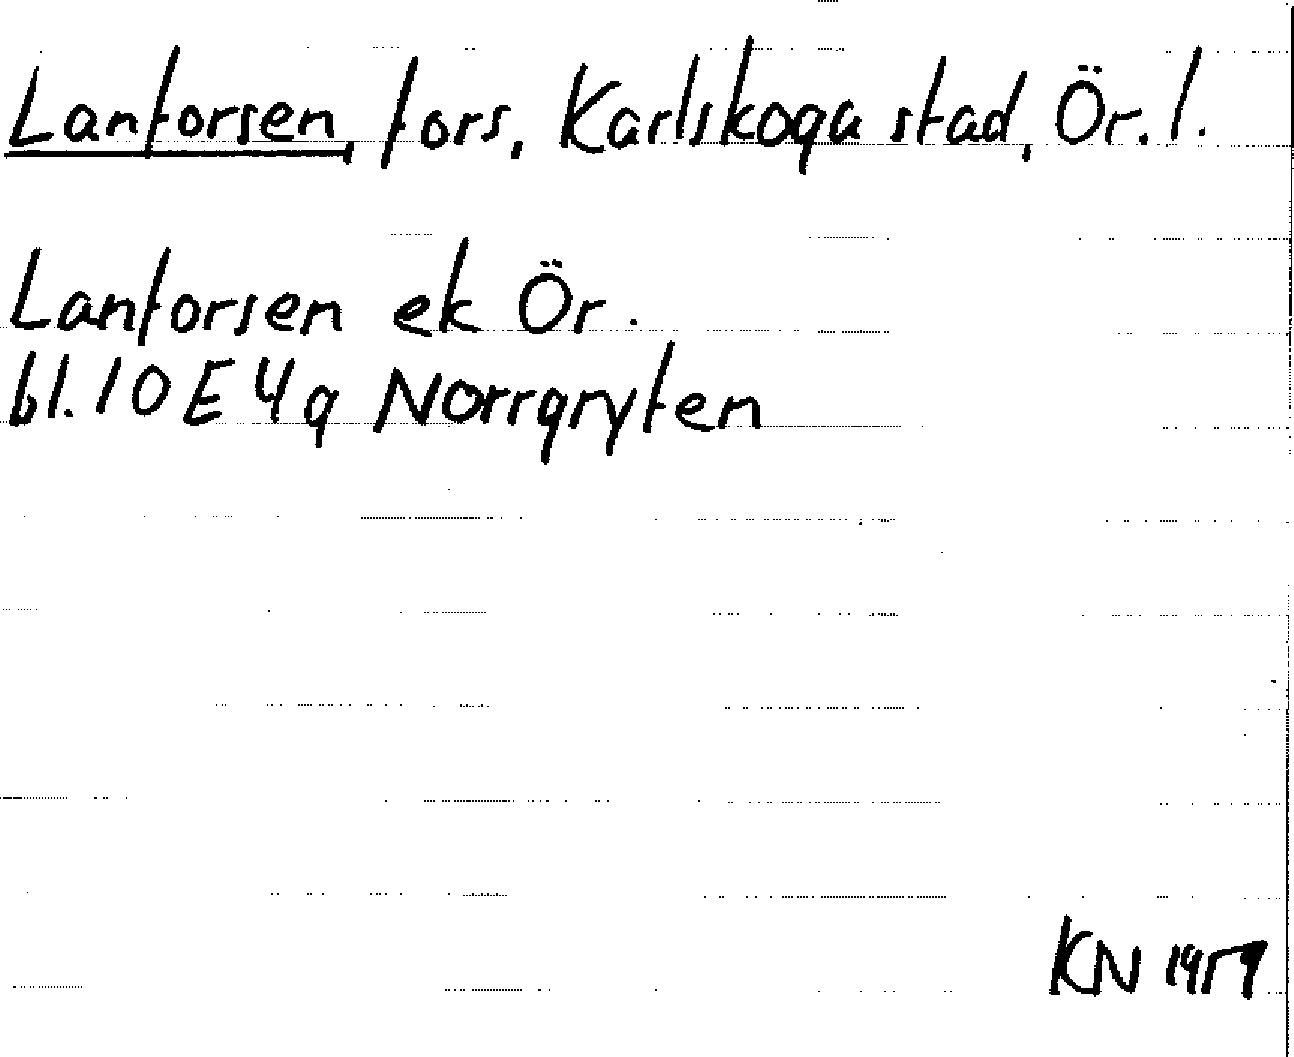 Lanforsen, fors, Karlskoga stad, Ör. l.
Lanforsen ek Ör.
bl. 10 E 4 g Norrgryten
KN 1959